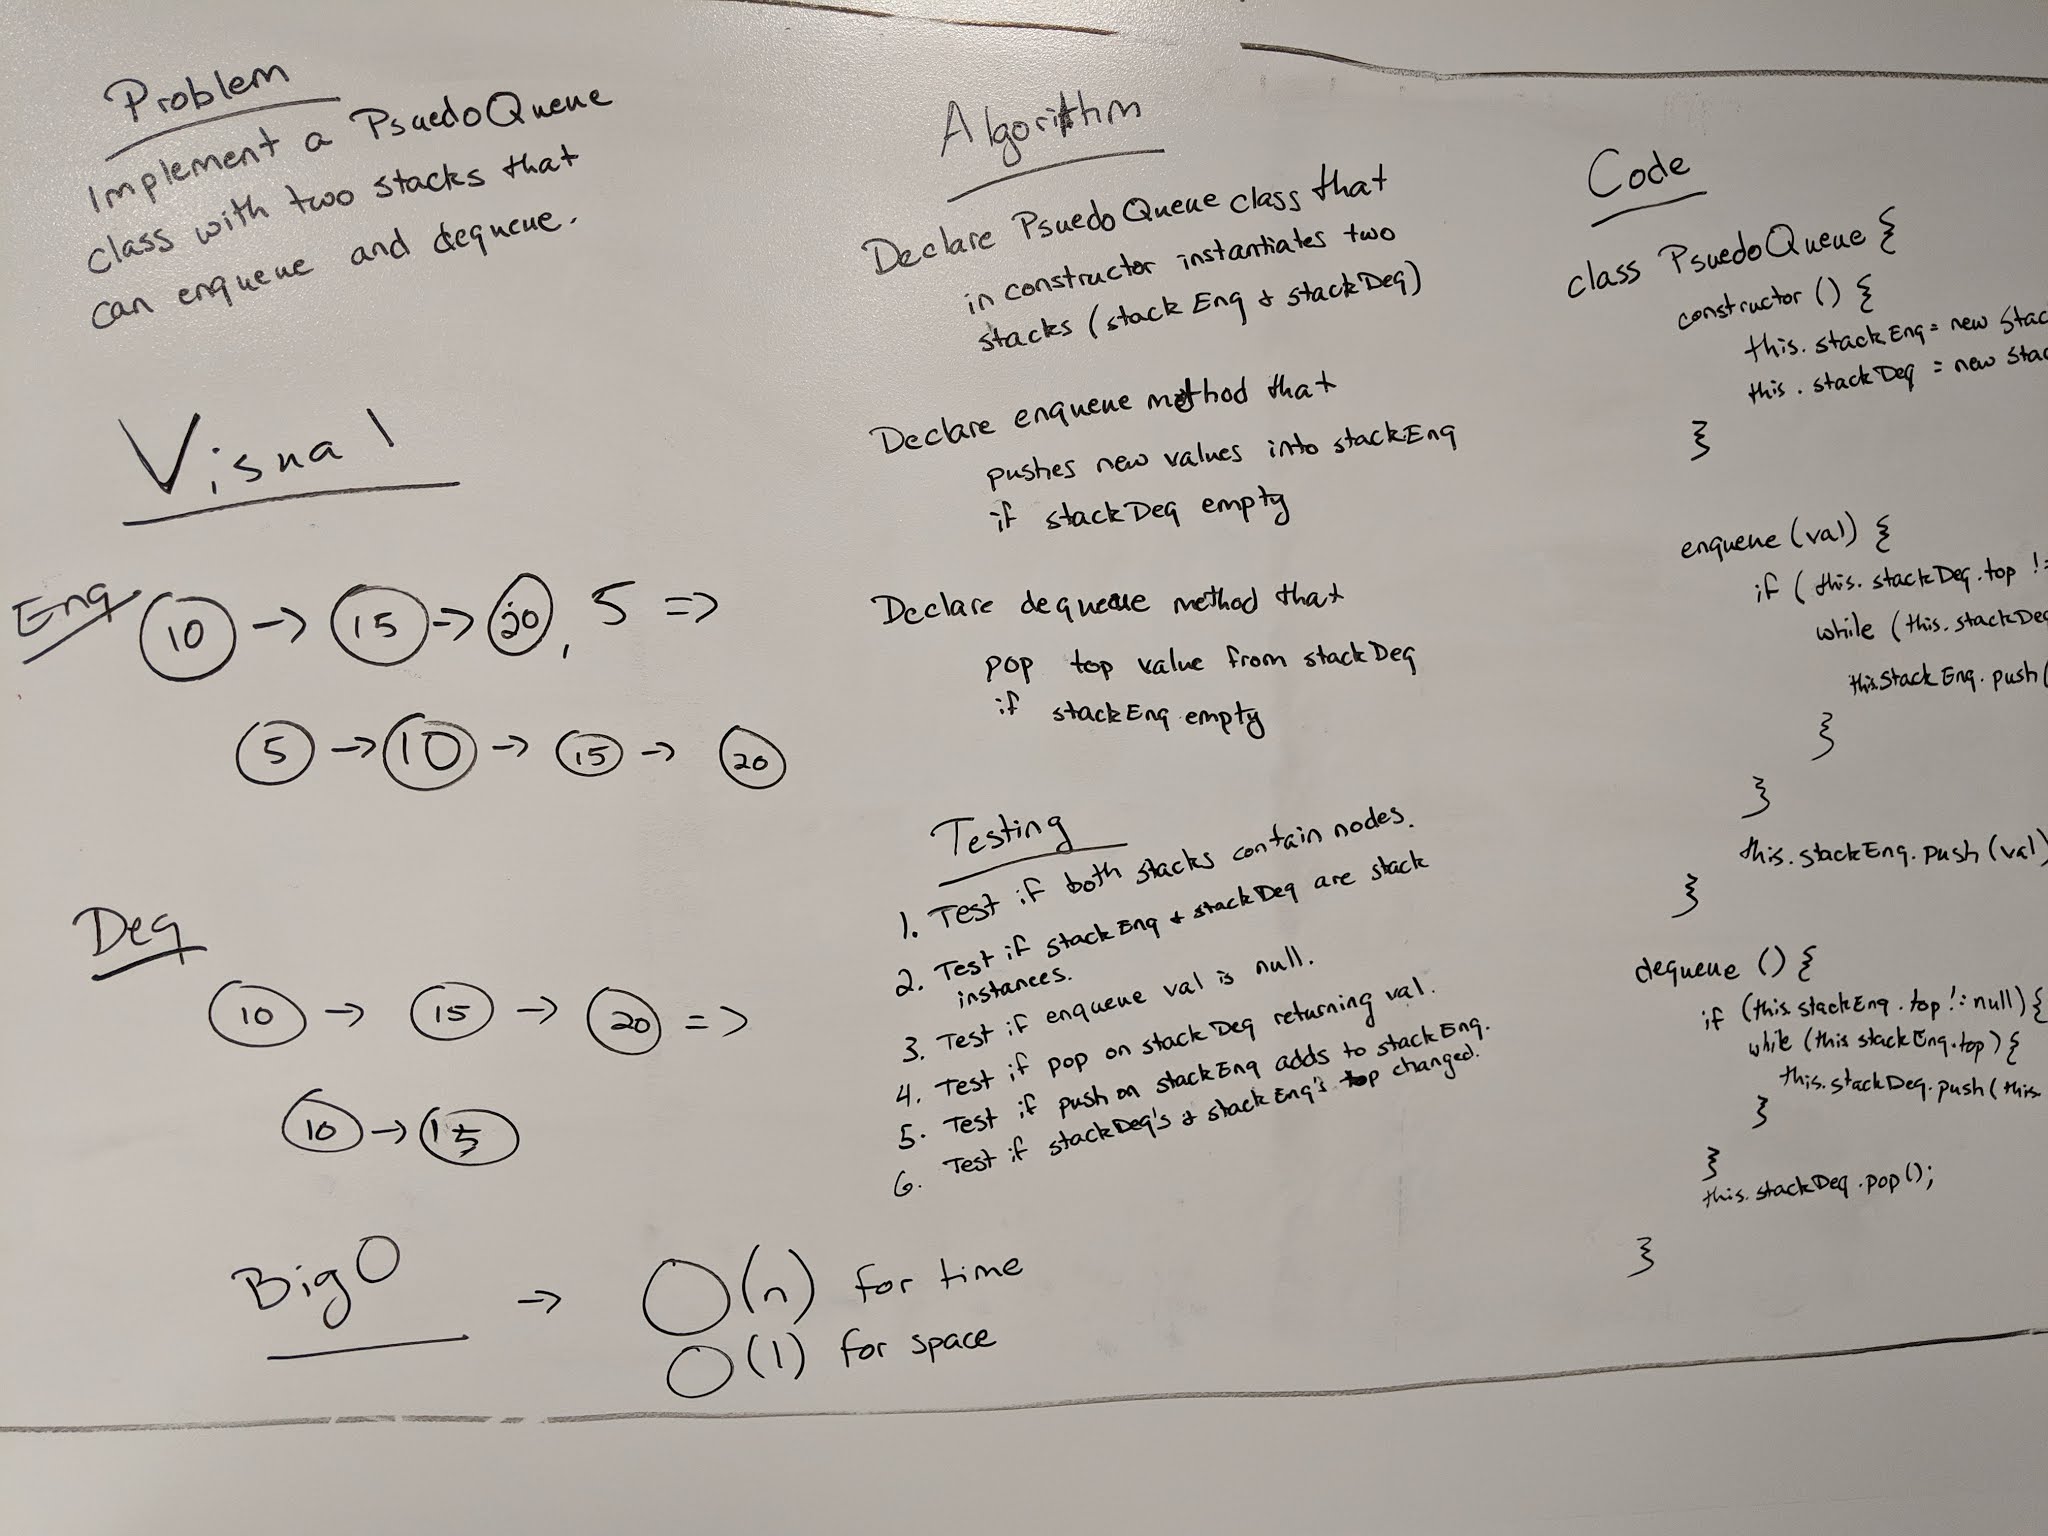 Problem
Implement a PsuedoQueue
class with two stacks that
can enqueue and dequeue.
Visual
Enq
10 -> 15 -> 20, 5 =>
5 -> 10 -> 15 -> 20
Deq
10 -> 15 -> 20 =>
10 -> 15
Big O -> O(n) for time
O(1) for space
Algorithm
Declare PsuedoQueue class that
in constructor instantiates two
stacks (stackEnq & stackDeq)
Declare enqueue method that
pushes new values into stackEnq
if stackDeq empty
Declare dequeue method that
pop top value from stackDeq
if stackEnq empty
Testing
1. Test if both stacks contain nodes.
2. Test if stackEnq & stackDeq are stack
instances.
3. Test if enqueue val is null.
4. Test if pop on stackDeq returning val.
5. Test if push on stackEnq adds to stackEnq.
6. Test if stackDeq's & stackEnq's top changed.
Code
class PsuedoQueue {
constructor () {
this.stackEnq = new Stac
this.stackDeq = new Stac
}
enqueue (val) {
if (this.stackDeq.top !=
while (this.stackDeq
this.stackEnq.push(
}
}
this.stackEnq.push(val)
}
dequeue () {
if (this.stackEnq.top != null) {
while (this stackEnq.top) {
this.stackDeq.push(this.
}
}
this.stackDeq.pop();
}